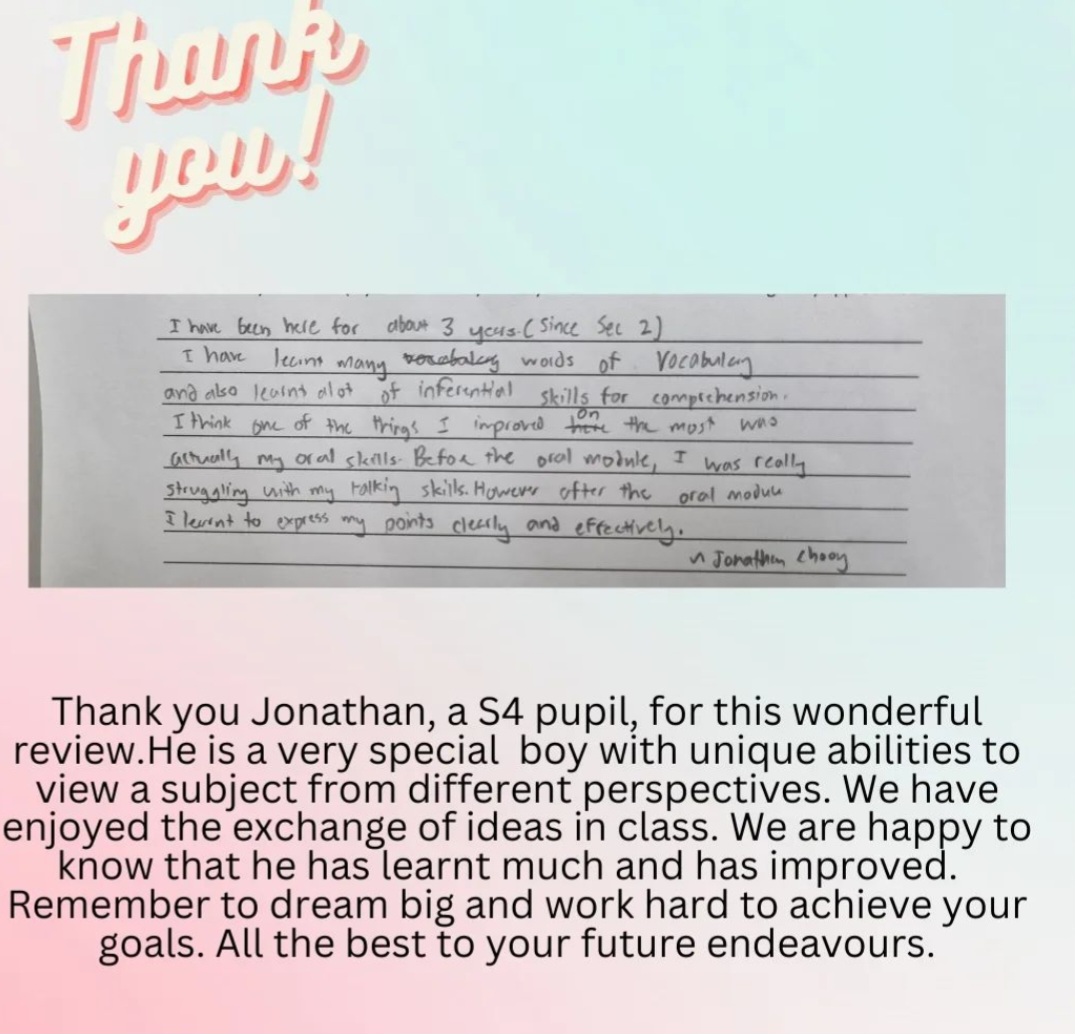 Thank
you!
I have been here for about 3 years. (Since Sec 2)
I have learnt many words of vocabulary
and also learnt alot of inferential skills for comprehension.
I think one of the things I improved on the most was
actually my oral skills. Before the oral module, I was really
struggling with my talking skills. However after the oral module
I learnt to express my points clearly and effectively.
~ Jonathan
Thank you Jonathan, a S4 pupil, for this wonderful
review.He is a very special boy with unique abilities to
view a subject from different perspectives. We have
enjoyed the exchange of ideas in class. We are happy to
know that he has learnt much and has improved.
Remember to dream big and work hard to achieve your
goals. All the best to your future endeavours.